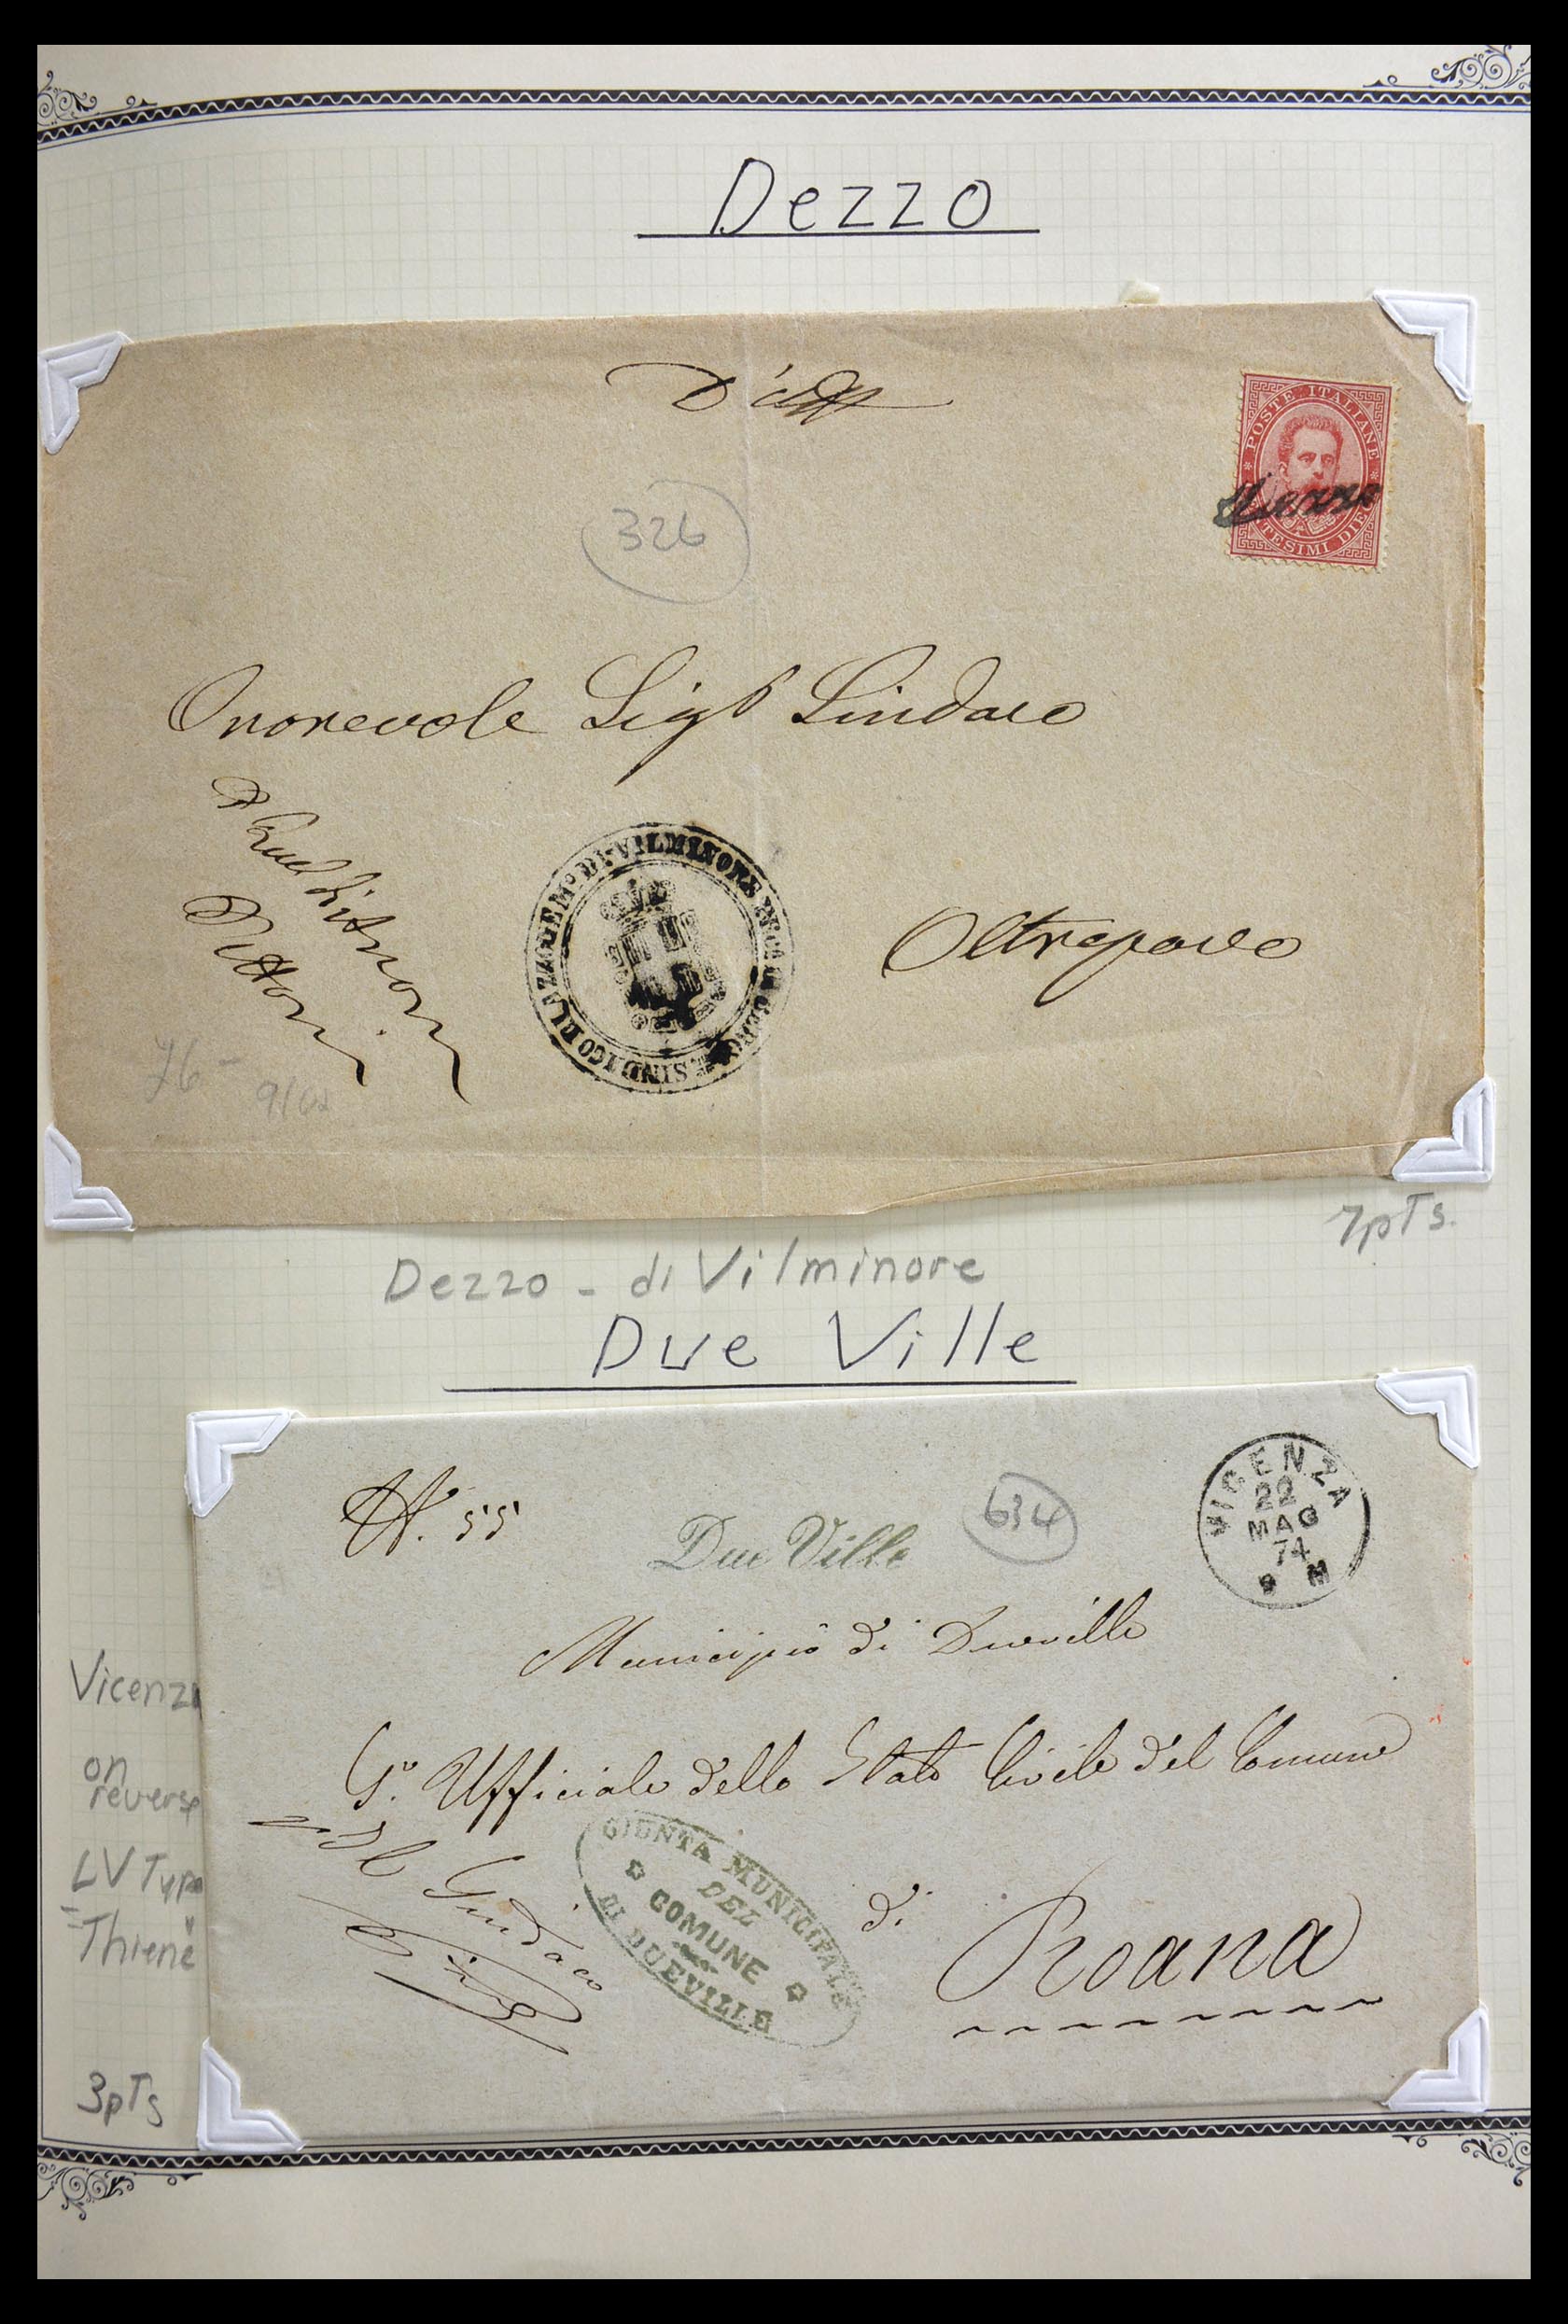 Dezzo
D'Uff
326
POSTE ITALIANE
TESIMI DIE
Dezzo
Onorevole Sigr Sindaco
Oltrepovo
SINDICO DI AZZONE Mo DI VILMINORE
76-
9/62
7pTs.
Dezzo - di Vilminore
Due Ville
N. 55
Due Ville
634
VICENZA
22
MAG
74
9 M
Municipio di Dueville
Ufficiale dello Stato Civile del Comune
Il Sindaco
GIUNTA MUNICIPALE
DEL
COMUNE
DI DUEVILLE
di
Roana
Vicenza
on
reverse
LV Type
=Thiene
3pTs